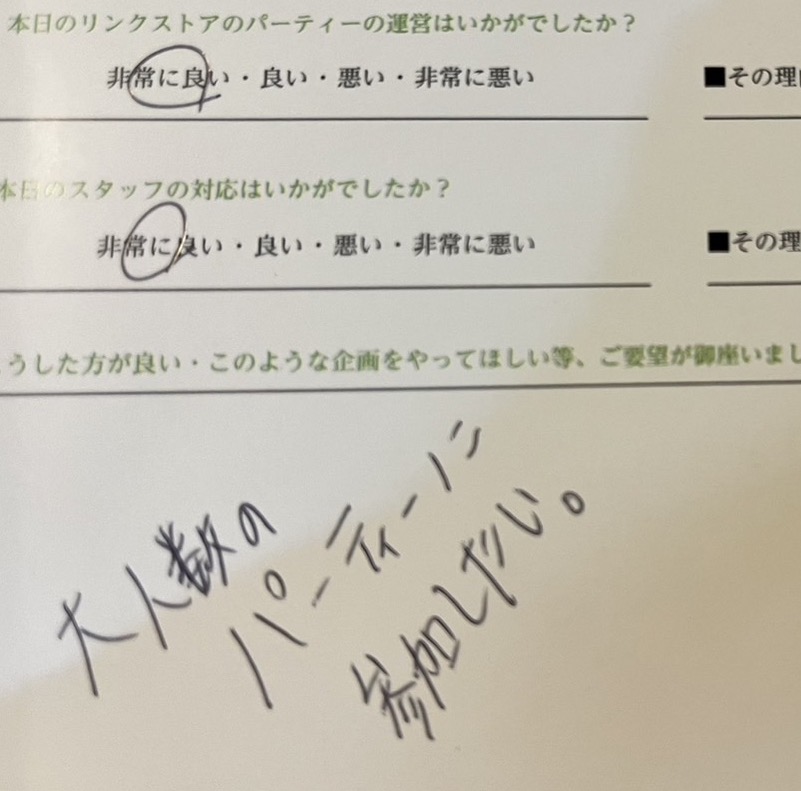 本日のリンクストアのパーティーの運営はいかがでしたか？
非常に良い・良い・悪い・非常に悪い
■その理
本日のスタッフの対応はいかがでしたか？
非常に良い・良い・悪い・非常に悪い
■その理
うした方が良い・このような企画をやってほしい等、ご要望が御座いまし
大人数の
パーティーに
参加したい。